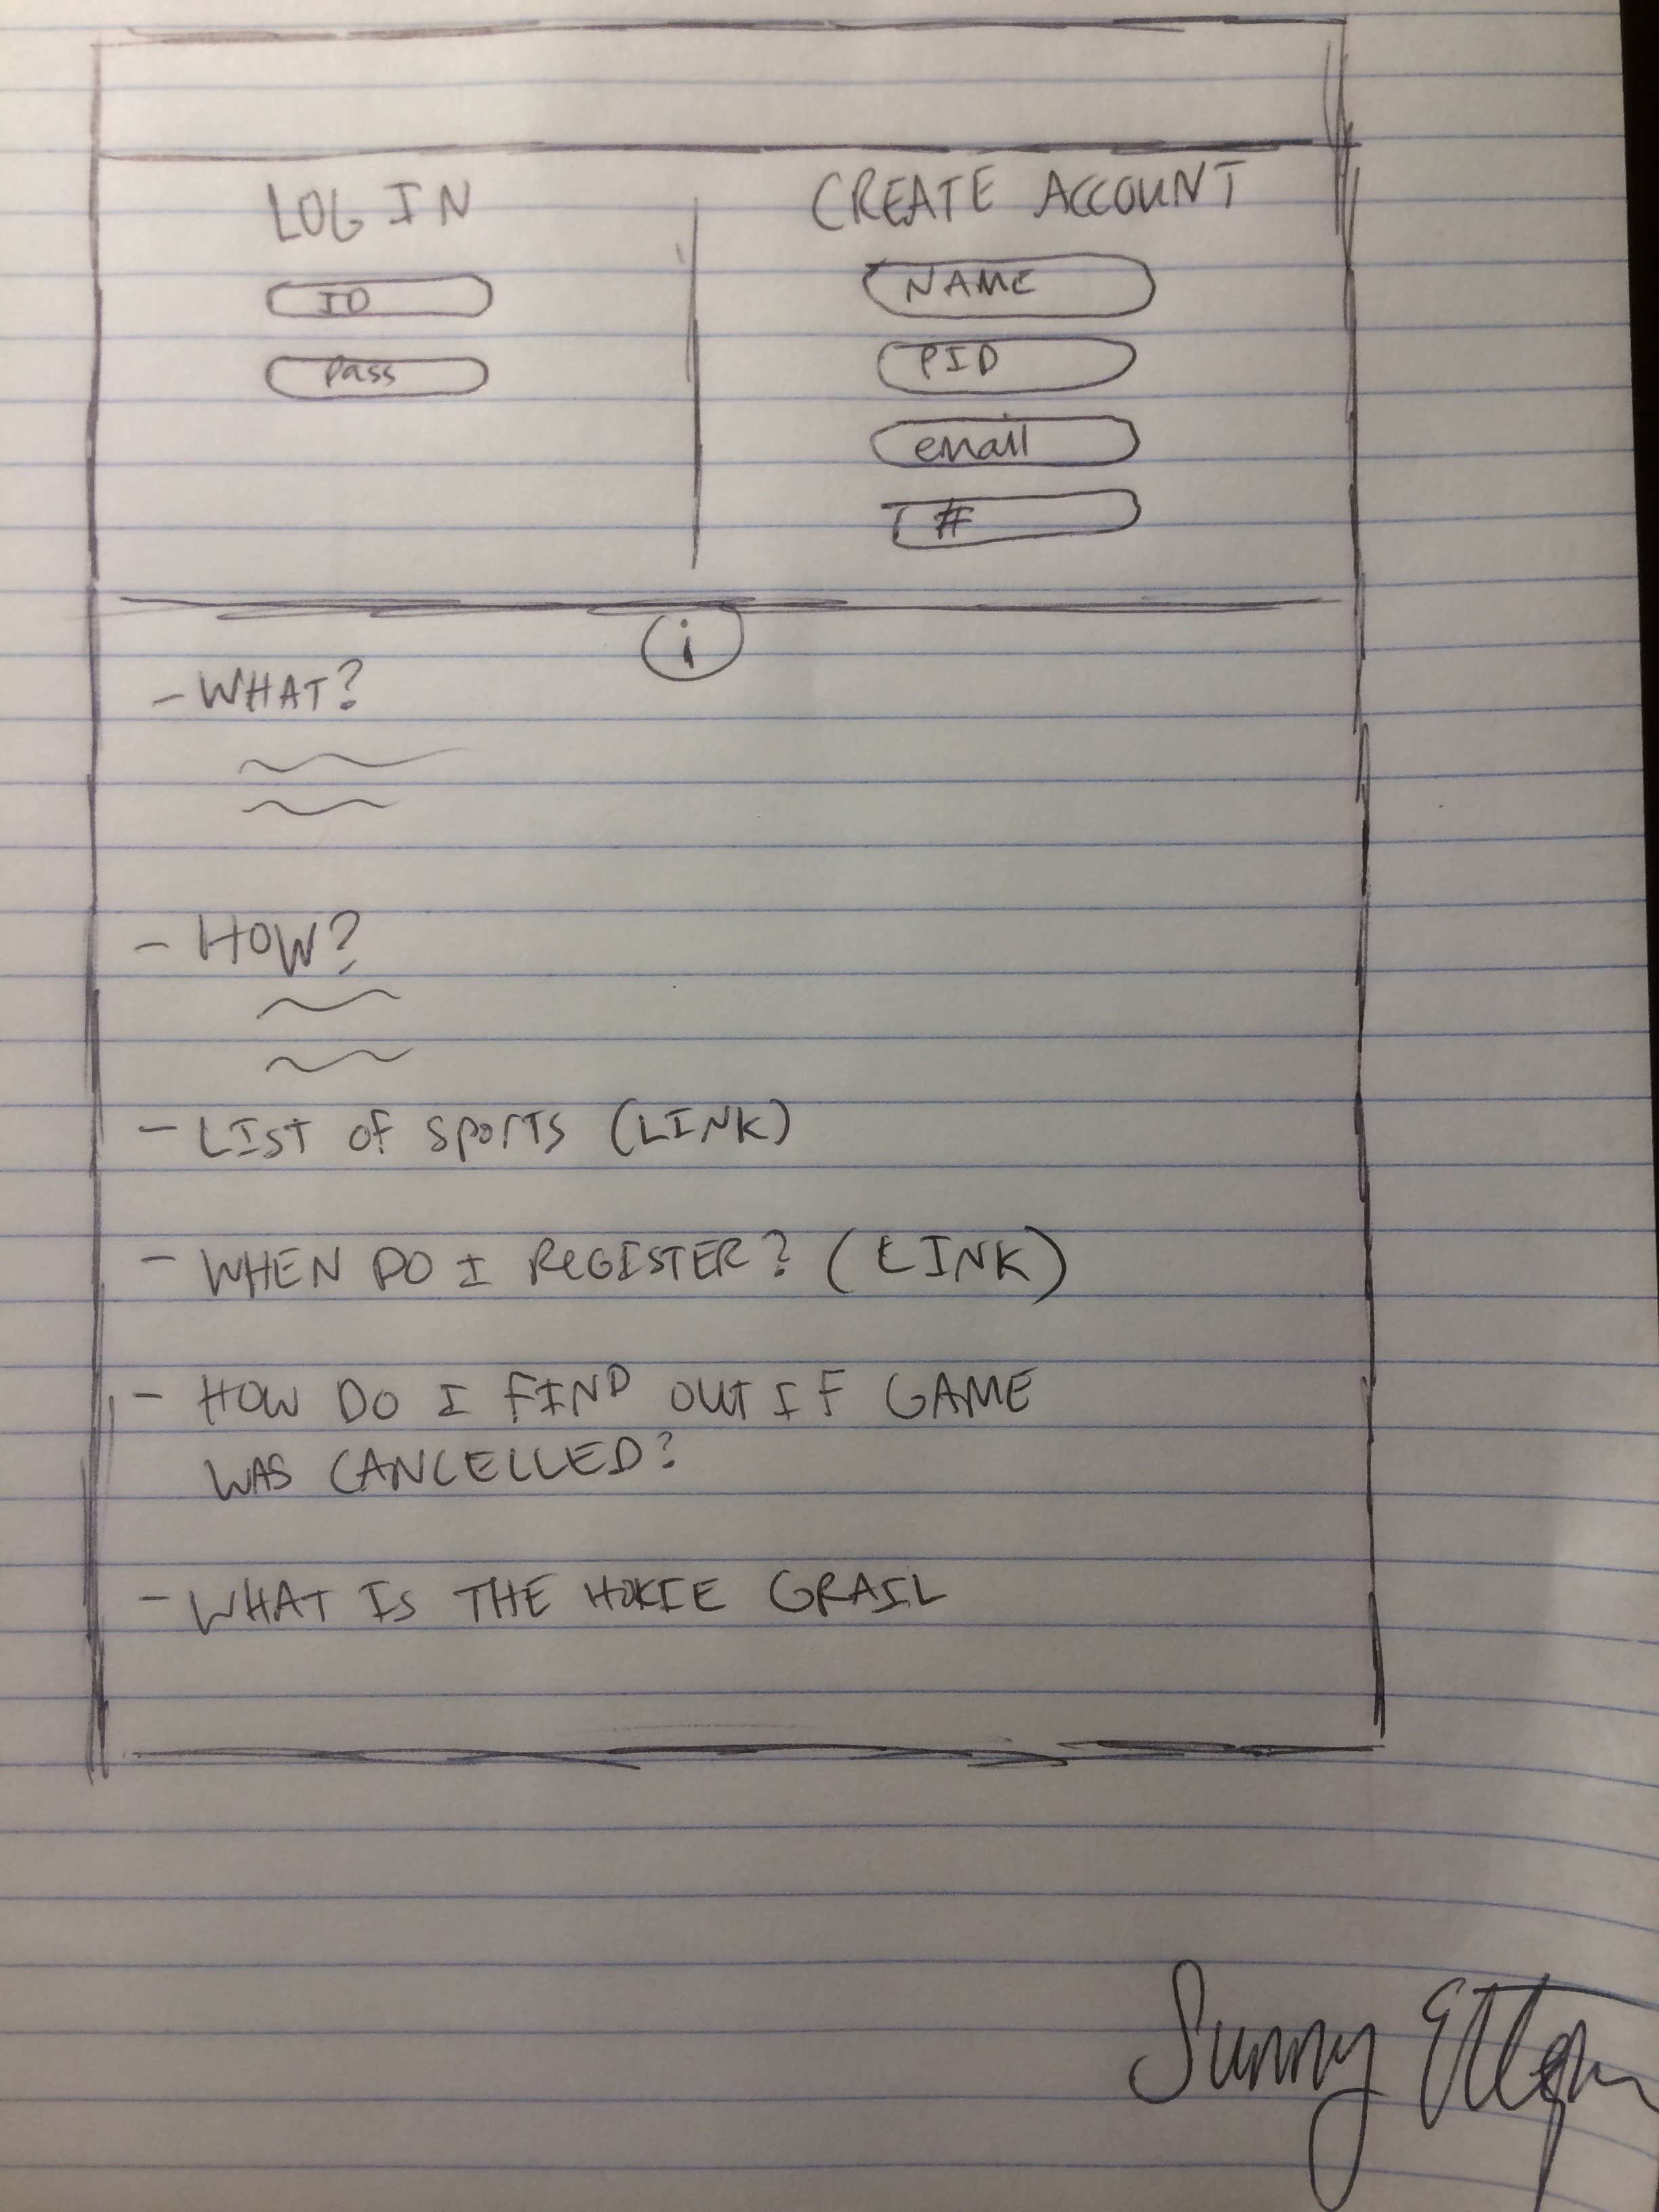 LOG IN
ID
Pass
CREATE ACCOUNT
NAME
PID
email
#
i
- WHAT?
- HOW?
- LIST OF SPORTS (LINK)
- WHEN DO I REGISTER? (LINK)
- HOW DO I FIND OUT IF GAME
WAS CANCELLED?
- WHAT IS THE HOKIE GRAIL
Sunny